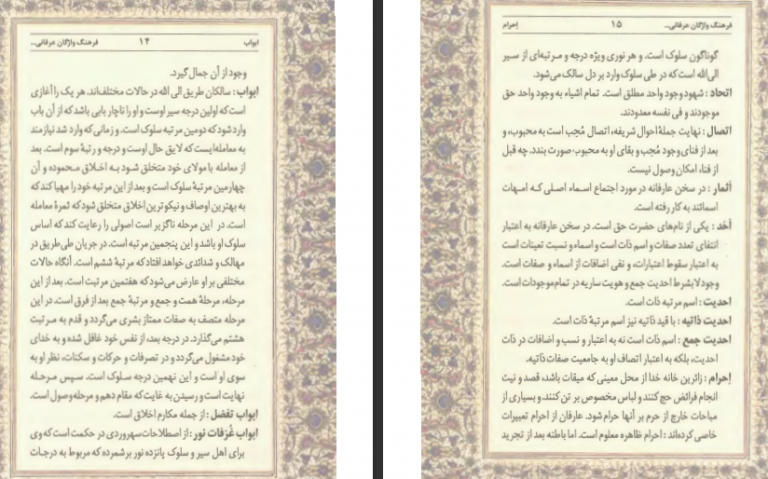 ابواب ۱۴ فرهنگ واژگان عرفانی...
وجود از آن جمال گیرد.
ابواب : سالکان طریق الی الله در حالات مختلف‌اند. هر یک را آغازی
است که اولین درجه سیر اوست و او را ناچار بابی باشد که از آن باب
وارد شود که دومین مرتبه سلوک است. و زمانی که وارد شد نیازمند
به معامله‌ایست که لایق حال اوست و درجه و رتبهٔ سوم است. بعد
از معامله با مولای خود متخلق شود به اخلاق محموده و آن
چهارمین مرتبهٔ سلوک است و بعد از این مرتبه خود را مهیا کند که
به بهترین اوصاف و نیکوترین اخلاق متخلق شود که ثمرهٔ معامله
است. در این مرحله ناگزیر است اصولی را رعایت کند که اساس
سلوک او باشد و این پنجمین مرتبه است. در جریان طی طریق در
مهالک و شدائدی خواهد افتاد که مرتبهٔ ششم است. آنگاه حالات
مختلفی بر او عارض می‌شود که هفتمین مرتبت است. بعد از این
مرحله، مرحلهٔ همت و جمع و مرتبهٔ جمع بعد از فرق است. در این
مرحله متصف به صفات ممتاز بشری می‌گردد و قدم به مرتبت
هشتم می‌گذارد. در درجه بعد، از نفس خود غافل شده و به خدای
خود مشغول می‌گردد و در تصرفات و حرکات و سکنات، نظر او به
سوی او است و این نهمین درجه سلوک است. سپس مرحله
نهایت است و رسیدن به غایت که مقام دهم و مرحله وصول است.
ابواب تفضل : از جمله مکارم اخلاق است.
ابواب غُرَفات نور : از اصطلاحات سهروردی در حکمت است که وی
برای اهل سیر و سلوک پانزده نور برشمرده که مربوط به درجات
فرهنگ واژگان عرفانی... ۱۵ إحرام
گوناگون سلوک است. و هر نوری ویژه درجه و مرتبه‌ای از سیر
الی الله است که در طی سلوک وارد بر دل سالک می‌شود.
اتحاد : شهود وجود واحد مطلق است. تمام اشیاء به وجود واحد حق
موجودند و فی نفسه معدودند.
اتصال : نهایت جملهٔ احوال شریفه، اتصال مُحِب است به محبوب، و
بعد از فنای وجود مُحِب و بقای او به محبوب صورت بندد. چه قبل
از فنا، امکان وصول نیست.
أثمار : در سخن عارفانه در مورد اجتماع اسماء اصلی که امهات
اسمائند به کار رفته است.
أحَد : یکی از نام‌های حضرت حق است. در سخن عارفانه به اعتبار
انتفای تعدد صفات و اسم ذات است و اسماء و نسبت تعینات است
به اعتبار سقوط اعتبارات، و نفی اضافات از اسماء و صفات است.
وجود لابشرط احدیت جمع و هویت ساریه در تمام موجودات است.
احدیت : اسم مرتبه ذات است.
احدیت ذاتیه : با قید ذاتیه نیز اسم مرتبهٔ ذات است.
احدیت جمع : اسم ذات است نه به اعتبار و نسب و اضافات در ذات
احدیت، بلکه به اعتبار اتصاف او به جامعیت صفات ذاتیه.
إحرام : زائرین خانه خدا از محل معینی که میقات باشد، قصد و نیت
انجام فرائض حج کنند و لباس مخصوص بر تن کنند، و بسیاری از
مباحات خارج از حرم بر آنها حرام شود. عارفان از احرام تعبیرات
خاصی کرده‌اند : احرام ظاهره معلوم است. اما باطنه بعد از تجرید